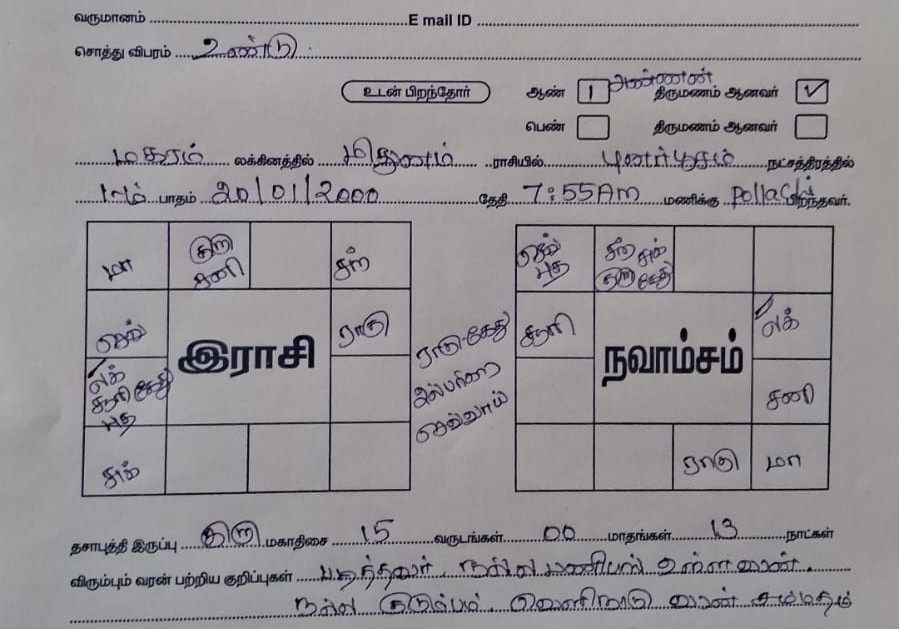 வருமானம் ........ E mail ID ........
சொத்து விபரம் உண்டு
உடன் பிறந்தோர் ஆண் 1 அண்ணன் திருமணம் ஆனவர் ✓
பெண் திருமணம் ஆனவர்
மகரம் லக்கினத்தில் மிதுனம் ராசியில் புனர்பூசம் நட்சத்திரத்தில்
1ம் பாதம் 20/01/2000 தேதி 7:55AM மணிக்கு Pollachi பிறந்தவர்.
மா குரு சனி சந்
செவ் ராகு
இராசி
லக் சூரி கேது புத
சுக்
ராகு-கேது
இல்பரிகார
செவ்வாய்
செவ் புத சந் சுக் குரு கேது
சூரி லக்
நவாம்சம்
சனி
ராகு மா
தசாபுத்தி இருப்பு குரு மகாதிசை 15 வருடங்கள் 00 மாதங்கள் 13 நாட்கள்
விரும்பும் வரன் பற்றிய குறிப்புகள் படித்தவர், நல்ல பணியில் உள்ள வரன்.
நல்ல குடும்பம். வெளிநாடு வரன் சம்மதம்